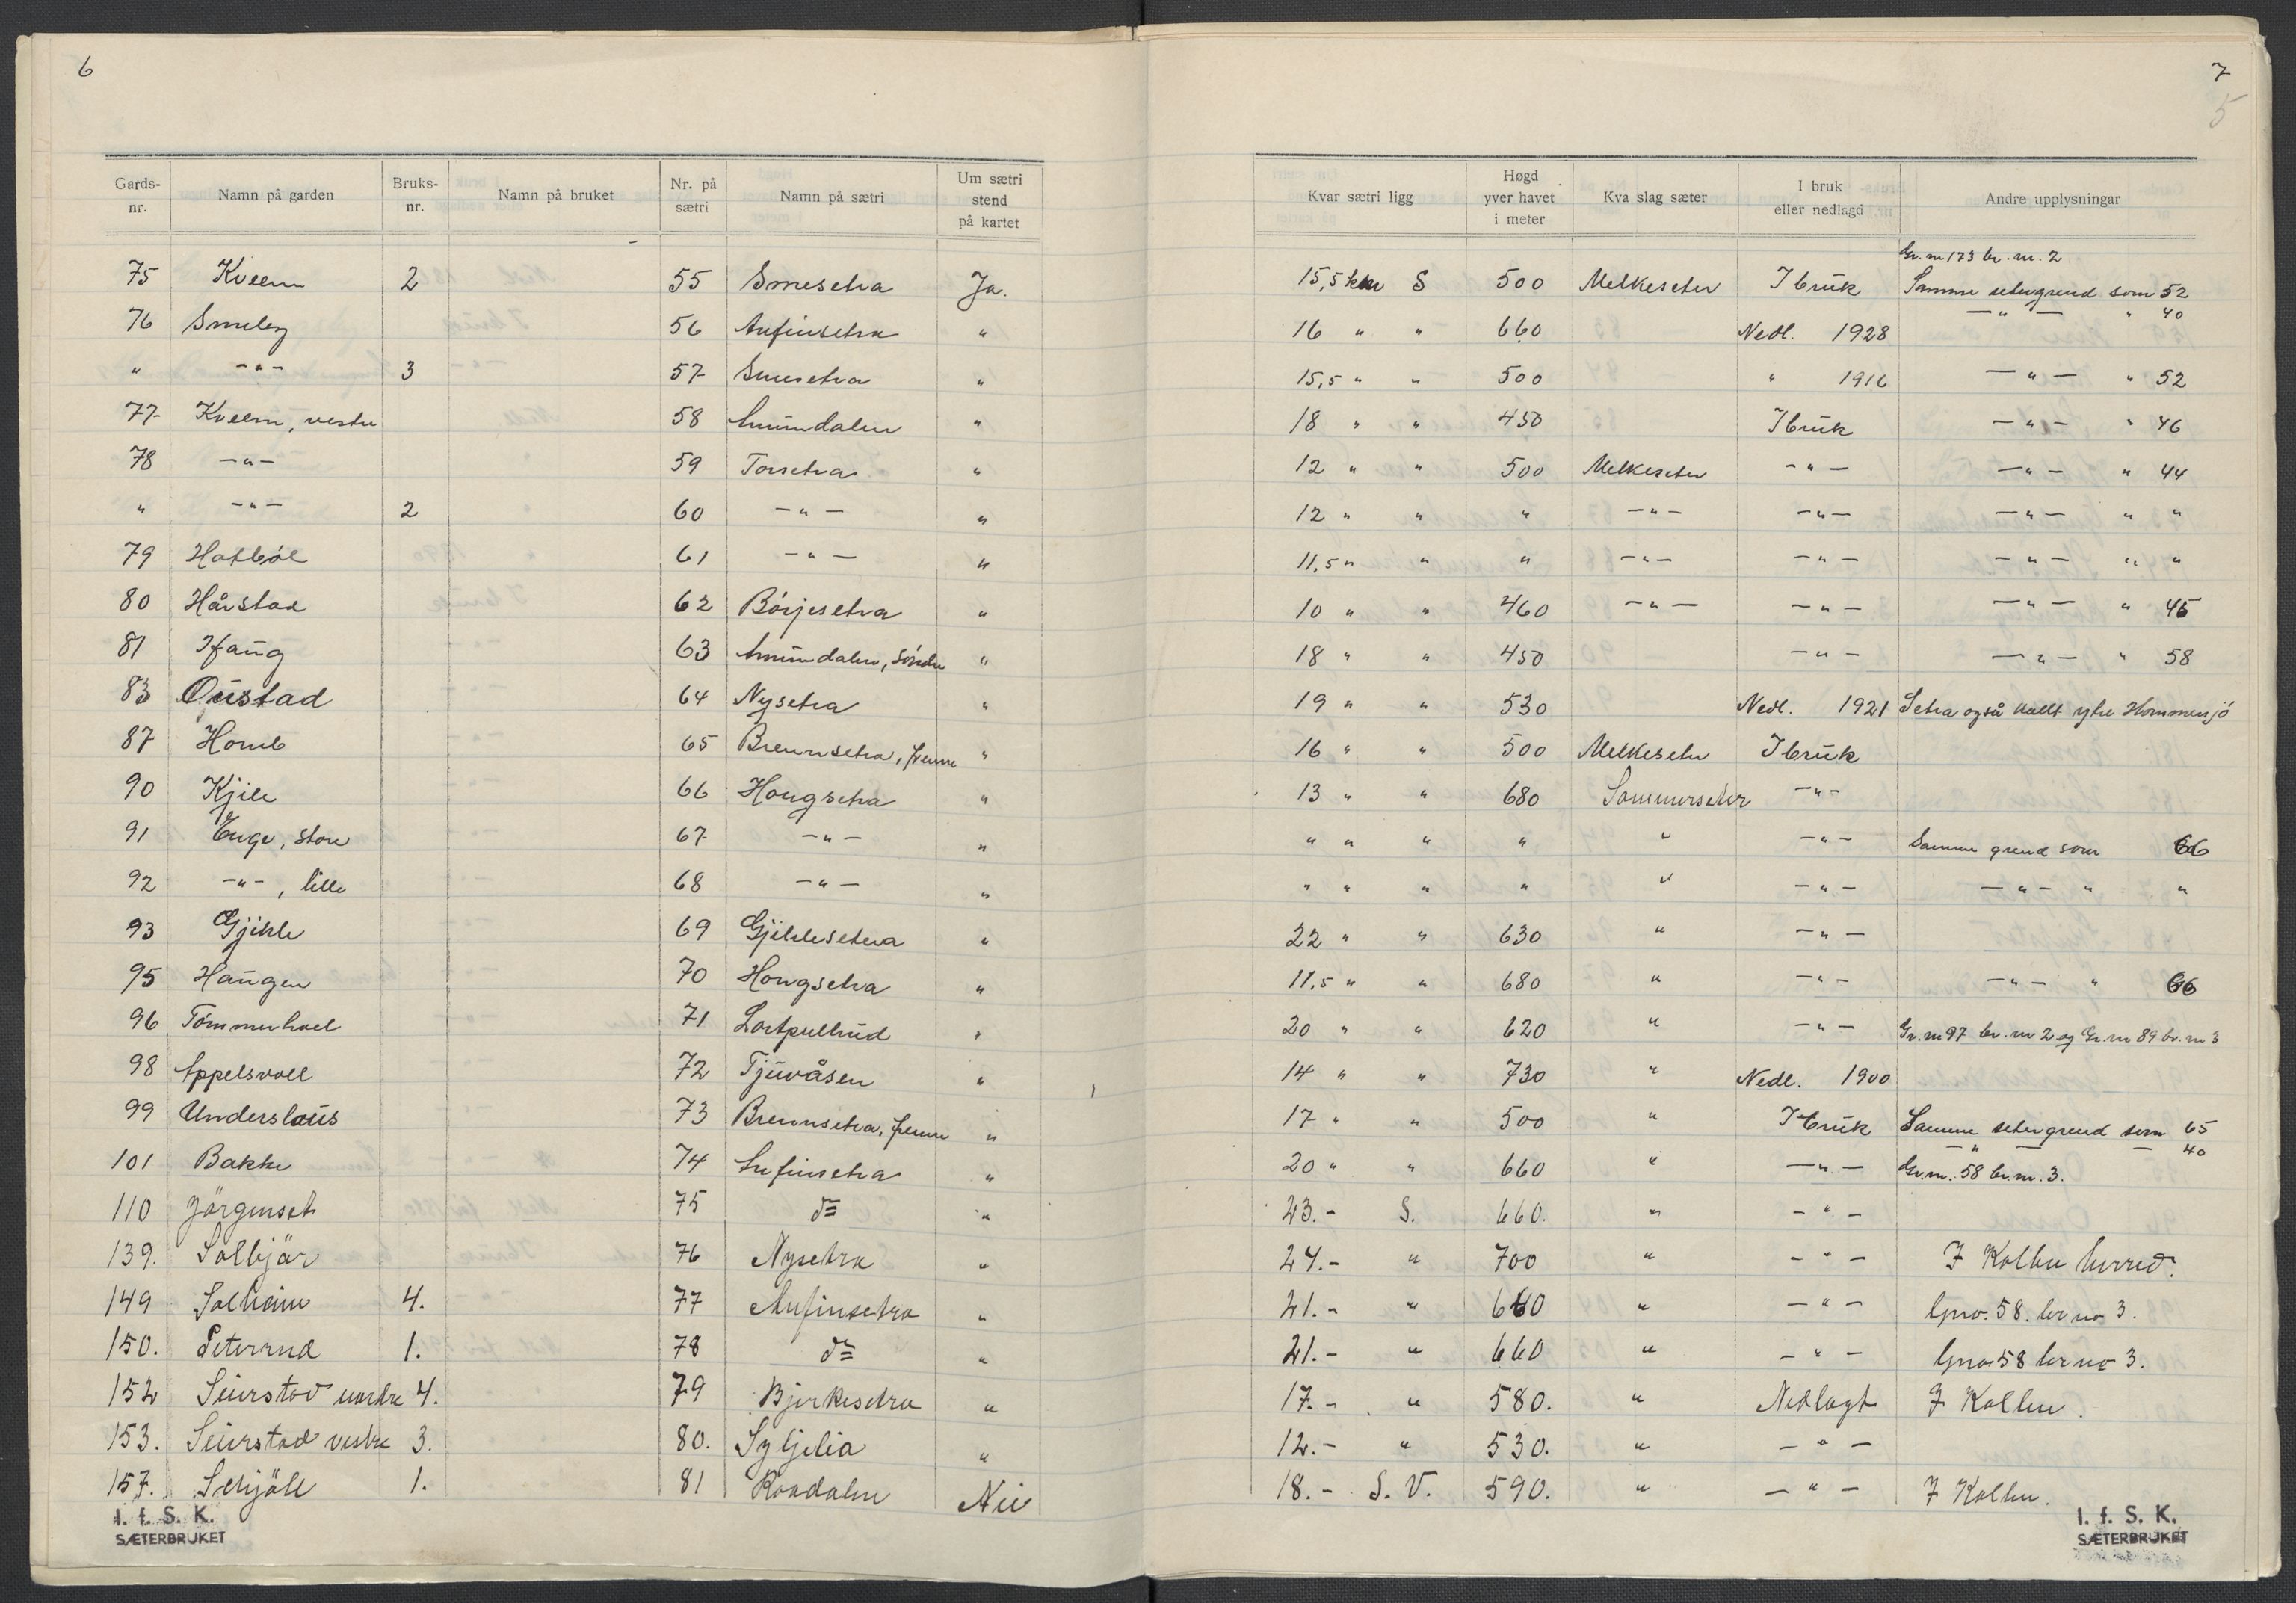 6
Gards-nr. Namn på garden Bruks-nr. Namn på bruket Nr. på sætri Namn på sætri Um sætri stend på kartet
75 Kveem 2 55 Smesetra Ja.
76 Smeby 56 Anfinsetra "
" -"- 3 57 Smesetra "
77 Kveem, vestre 58 Amundalen "
78 -"- 59 Torsetra "
" -"- 2 60 -"- "
79 Hatbøl 61 -"- "
80 Hårstad 62 Börjesetra "
81 Ifang 63 Amundalen, söndre "
83 Oustad 64 Nysetra "
87 Homb 65 Brennsetra, fremre "
90 Kjile 66 Hongsetra "
91 Enge, store 67 -"- "
92 -"-, lille 68 -"- "
93 Gjikle 69 Gjiklesetra "
95 Haugen 70 Hongsetra "
96 Tömmerhoel 71 Lortpultrud "
98 Appelsvoll 72 Tjuvåsen "
99 Underslaus 73 Brennsetra, fremre "
101 Bakke 74 Anfinsetra "
110 Jörgenset 75 do "
139. Solbjör 76 Nysetra "
149 Solheim 4. 77 Anfinsetra "
150. Peterrud 1. 78 do "
152 Seierstad nordre 4. 79 Bjerkesetra "
153. Seierstad vestre 3. 80. Syljelia "
157. 1. 81 Roadalen Nei
I. f. S. K.
SÆTERBRUKET
7
5
Kvar sætri ligg Høgd yver havet i meter Kva slag sæter I bruk eller nedlagd Andre upplysningar
Gr.nr 173 br.nr. 2
15,5 km S 500 Melkeseter I bruk Samme setergrend som 52
16 " " 660 Nedl. 1928 -"- " 40
15,5 " " 500 " 1916 -"- " 52
18 " " 450 I bruk -"- " 46
12 " " 500 Melkeseter -"- -"- " 44
12 " " " -"- -"- -"- " "
11,5 " " " -"- -"- -"- " "
10 " " 460 -"- -"- -"- " 45
18 " " 450 -"- -"- " 58
19 " " 530 Nedl. 1921 Setra også kallt ytre Hommersjö
16 " " 500 Melkeseter I bruk
13 " " 680 Sommerseter -"-
" " " " " -"- Samme grend som 66
" " " " " -"- -"- " "
22 " " 630 " -"-
11,5 " " 680 " -"- -"- " 66
20 " " 620 " -"- Gr.nr 97 br.nr 2 og Gr.nr 89 br.nr 3
14 " " 730 " Nedl. 1900
17 " " 500 " I bruk Samme setergrend som 65
-"- - 40
20 " " 660 " -"- Gr.nr. 58 br.nr. 3.
23.- S. 660. " -"-
24.- " 700 " -"- I Kolbu herred.
21.- " 660 " -"- Gno. 58. br no 3.
21.- " 660 " -"- Gno 58 br no 3.
17.- " 580. " Nedlagt I Kolbu.
12.- " 530. " -"-
18.- S.V. 590. " -"- I Kolbu.
I. f. S. K.
SÆTERBRUKET